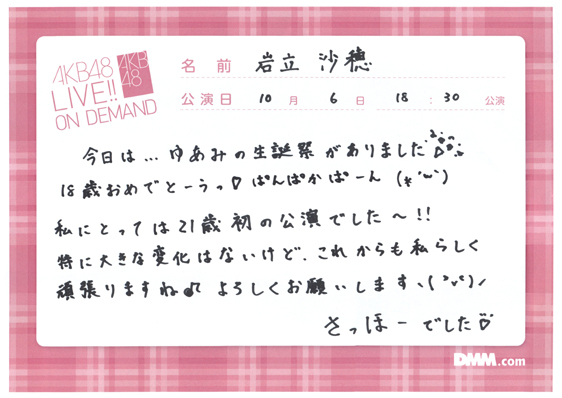 AKB48
LIVE!!
ON DEMAND
AKB
48
名前 岩立 沙穂
公演日 10 月 6 日 18 : 30 公演
今日は…ゆあみの生誕祭がありました
18歳おめでとーうっ♡ ぱんぱかぱーん (*'ω')
私にとっては21歳初の公演でした〜!!
特に大きな変化はないけど、これからも私らしく
頑張りますね♪ よろしくお願いします
さっほーでした♡
DMM.com